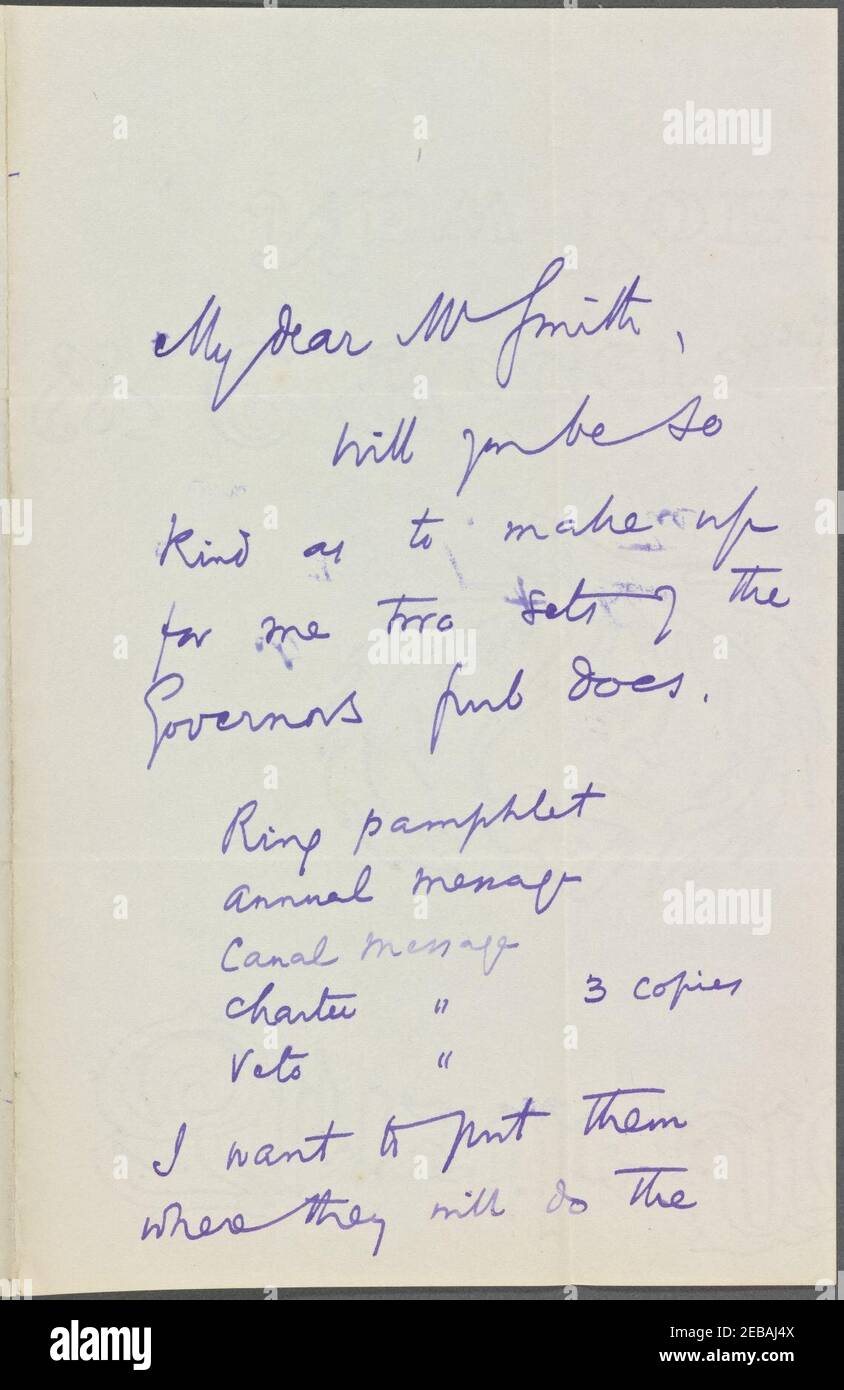 My dear Mr Smith,
Will you be so
kind as to make up
for me two sets of the
Governors pub docs.
Ring pamphlet
annual message
Canal message
Charter " 3 copies
Veto "
I want to put them
where they will do the
alamy
Image ID: 2EBAJ4X
www.alamy.com